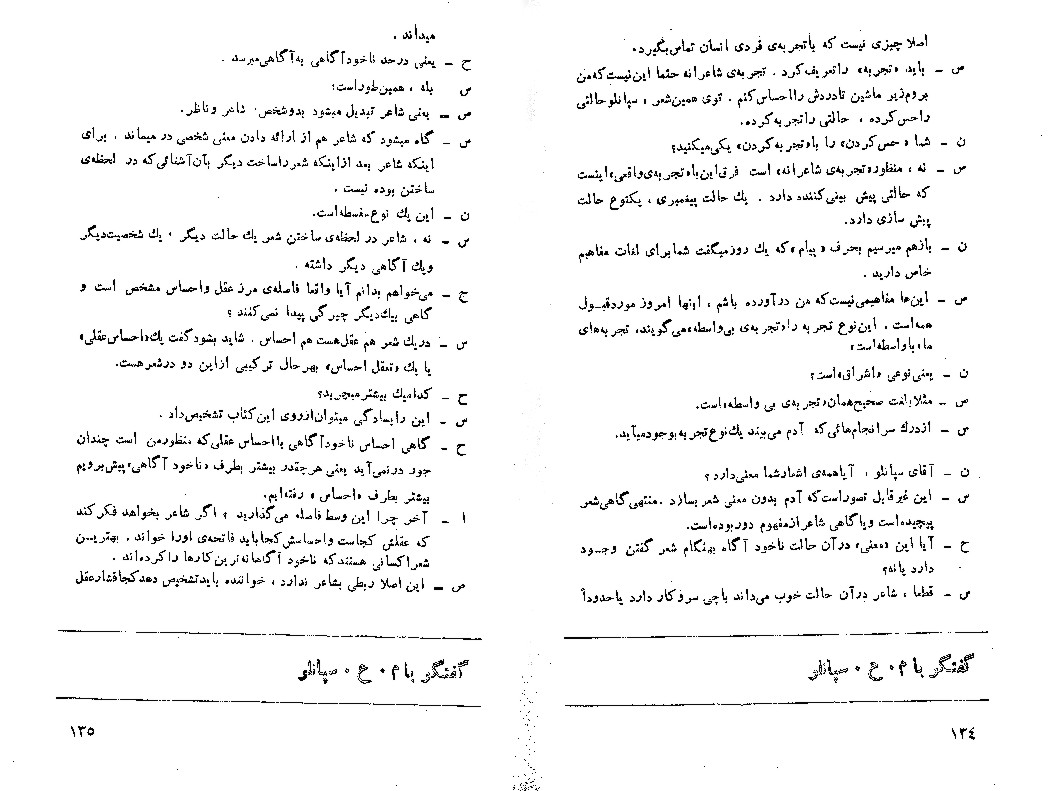 اصلا چیزی نیست که باتجربه‌ی فردی انسان تماس‌بگیرد.
ص ـ باید، «تجربه» راتعریف‌کرد . تجربه‌ی شاعرانه حتما این‌نیست‌که‌من
بروم‌زیر ماشین تادردش رااحساس‌کنم . توی همین‌شعر ، سپانلوحالتی
راحس‌کرده ، حالتی راتجربه‌کرده.
ن ـ شما «حس‌کردن» را با«تجربه‌کردن» یکی‌میکنید؟
س ـ نه ، منظور«تجربه‌ی شاعرانه» است فرق‌این‌با«تجربه‌ی‌واقعی» اینست
که حالتی پیش بینی‌کننده دارد . یك حالت پیغمبری ، یكنوع حالت
پیش سازی دارد.
ن ـ بازهم میرسیم بحرف «پیام» که یك روزمیگفت شمابرای لغات مفاهیم
خاص دارید .
س ـ این‌ها مفاهیمی‌نیست‌که من درآورده باشم ، اینها امروز موردقبـول
همه‌است . این‌نوع تجربه را«تجربه‌ی بی‌واسطه»می‌گویند، تجربه‌های
ما«باواسطه‌است»
ن ـ یعنی‌نوعی «اشراق»است؟
ص ـ مثلا،لغت صحیح‌همان«تجربه‌ی بی واسطه»است.
س ـ ازدرك سرانجام‌هائی‌که آدم می‌بیند یك‌نوع‌تجربه‌بوجودمیآید.
ن ـ آقای سپانلو ، آیاهمه‌ی اشعارشما معنی‌دارد؟
س ـ این غیرقابل تصوراست‌که آدم بدون معنی شعر بسازد .منتهی‌گاهی‌شعر
پیچیده‌است ویاگاهی شاعرازمفهوم دوربوده‌است.
ح ـ آیا این «معنی» درآن حالت ناخود آگاه بهنگام شعر گفتن وجـود
دارد یانه؟
س ـ قطعا ، شاعر درآن حالت خوب می‌داند باچی سروکار دارد یاحدوداً
گفتگو با م . ع . سپانلو
۱۳۴
میداند .
ح ـ یعنی درحد ناخودآگاهی به‌آگاهی‌میرسد .
س ـ بله ، همین‌طوراست؛
ص ـ یعنی شاعر تبدیل میشود بدوشخص۰ شاعر وناظر.
س ـ گاه میشود که شاعر هم از ارائه دادن معنی شخصی در میماند . برای
اینکه شاعر بعد ازاینکه شعرراساخت دیگر بآن‌آشنائی‌که در لحظه‌ی
ساختن بوده نیست .
ن ـ این یك نوع‌سفسطه‌است.
س ـ نه ، شاعر در لحظه‌ی ساختن شعر یك حالت دیگر ، یك شخصیت‌دیگر
ویك آگاهی دیگر داشته .
ح ـ می‌خواهم بدانم آیا واقعا فاصله‌ی مرز عقل واحساس مشخص است و
گاهی بیك‌دیگر چیرگی پیدا نمی‌کنند ؟
س ـ دریك شعر هم عقل‌هست هم احساس . شاید بشودگفت یك«احساس‌عقلی»
یا یك «تعقل احساس» بهرحال ترکیبی ازاین دو درشعرهست.
ح ـ کدامیك بیشترمیچربد؟
س ـ این رابسادگی میتوان‌ازروی این‌کتاب تشخیص‌داد .
ح ـ گاهی احساس ناخودآگاهی بااحساس عقلی‌که منظورمن است چندان
جور درنمی‌آید یعنی هرچقدر بیشتر بطرف «ناخود آگاهی»پیش‌برویم
بیشتر بطرف «احساس» رفته‌ایم.
ا ـ آخر چرا این وسط فاصله می‌گذارید ؟ اگر شاعر بخواهد فکرکند
که عقلش کجاست واحساسش‌کجاباید فاتحه‌ی اورا خواند . بهتریـن
شعراکسانی هستندکه ناخود آگاهانه‌ترین‌کارها راکرده‌اند .
ص ـ این اصلا ربطی بشاعر ندارد ، خواننده بایدتشخیص دهدکجافشارعقل
گفتگو با م . ع . سپانلو
۱۳۵